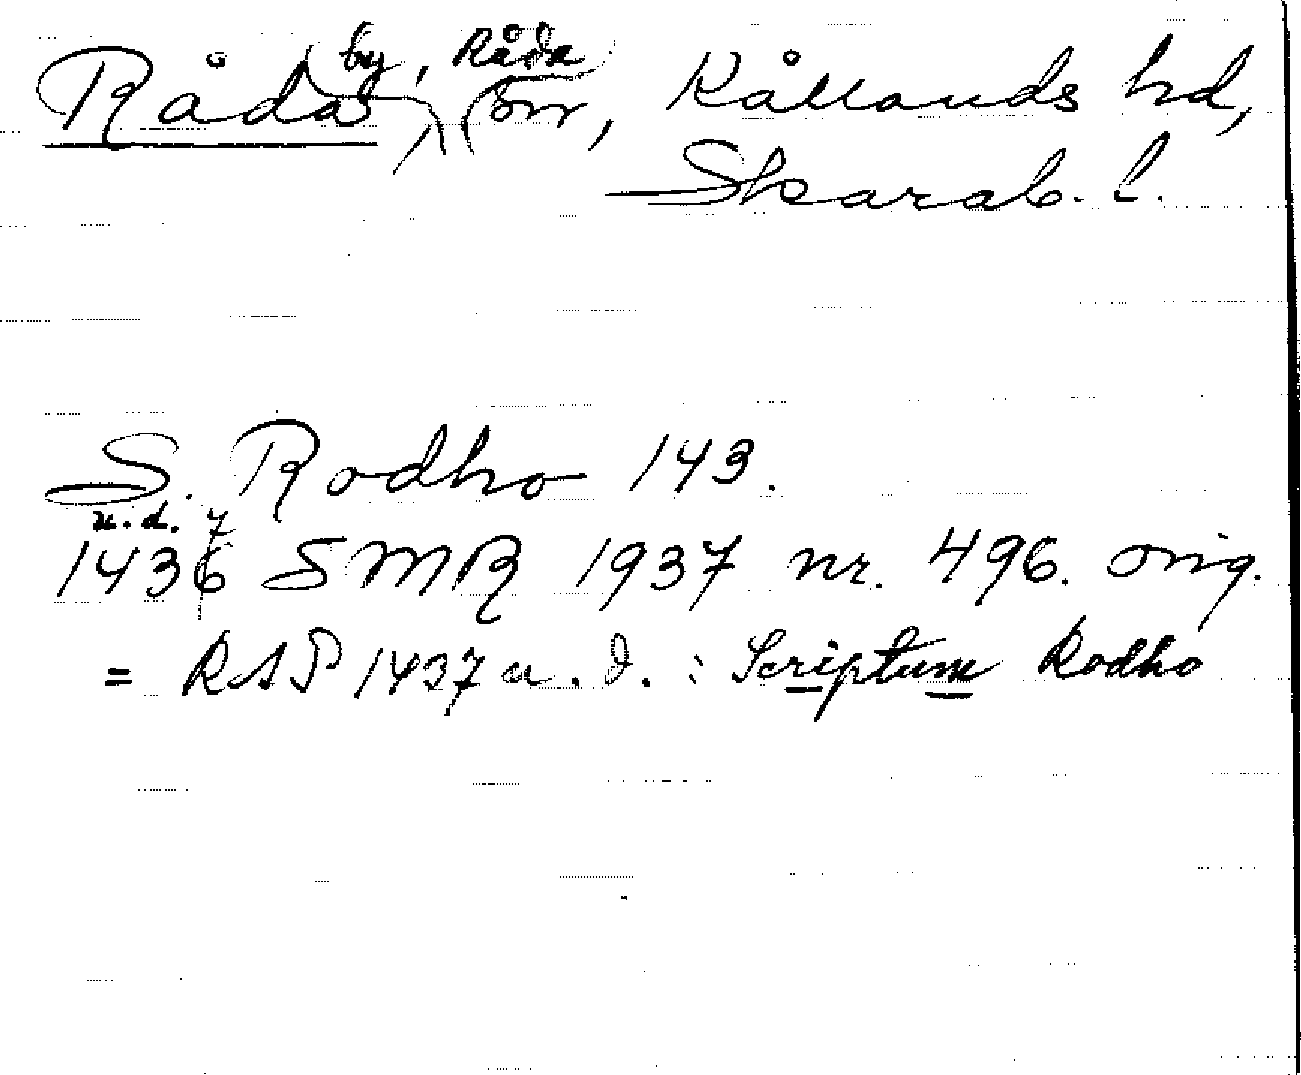 Råda by, Råda sn, Kållands hd,
Skarab. l.
S. Rodho 143.
u. d. 7
1436 SMR 1937 nr. 496. orig.
= RAP 1437 u. d. : Scriptum Rodho